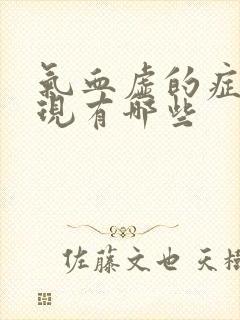 氣血虛的症
現有哪些
佐藤文也 天樹